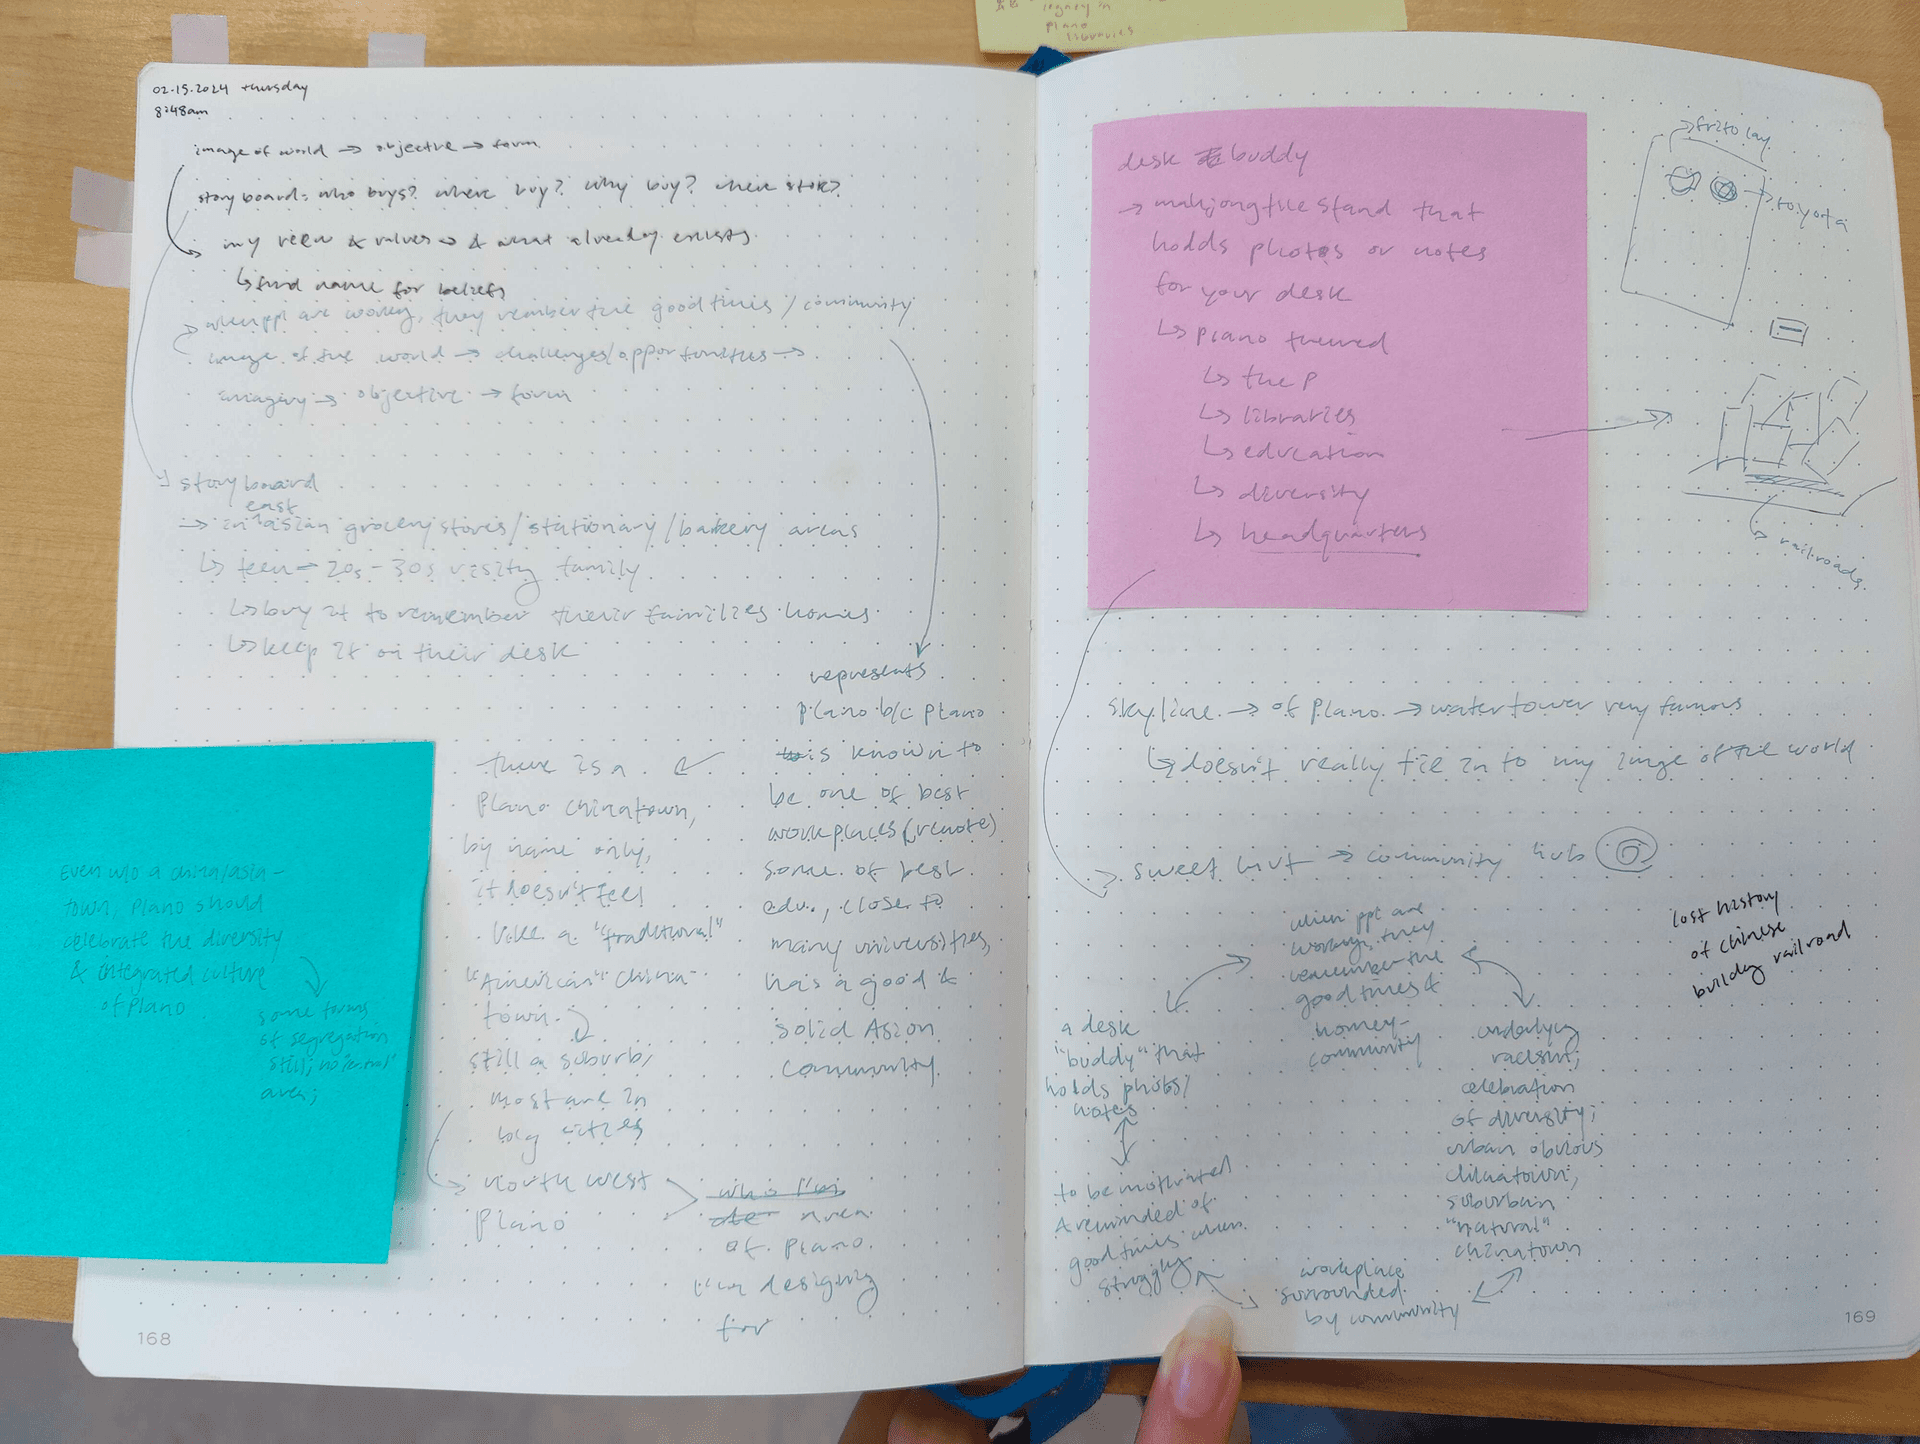 legacy in
plano
libraries
02.15.2024 thursday
8:48am
image of world → objective → form
storyboard: who buys? where buy? why buy? where store?
my view & values → & what already exists
↳ find name for beliefs
when ppl are working, they rember the good times / community
image of the world → challenges/opportunities →
imagery → objective → form
storyboard
east
→ in ^ asian grocery stores/stationary/bakery areas
↳ teen - 20s - 30s visity family
↳ buy it to remember their families homes
↳ keep it on their desk
represents
plano b/c plano
is known to
be one of best
workplaces (remote)
some of best
edu., closer to
many universities,
has a good &
solid Asian
community
there is a
plano chinatown,
by name only,
it doesn't feel
like a "traditional"
"American" china-
town.
still a suburb,
most are in
big cities
north west
plano
who I'm
area
of plano
I'm designing
for
Even w/o a china/asia-
town, plano should
celebrate the diversity
& integrated culture
of plano
some forms
of segregation
still;
area;
168
desk buddy
→ mahjong tile stand that
holds photos or notes
for your desk
↳ plano themed
↳ the P
↳ libraries
↳ education
↳ diversity
↳ headquarters
→ frito lay
→ toyota
railroads
skyline → of plano → water tower very famous
↳ doesn't really tie in to my image of the world
sweet hut → community hub
lost history
of chinese
building railroad
when ppl are
working, they
remember the
good times &
homey-
community
a desk
"buddy" that
holds photos/
notes
to be motivated
& reminded of
good times when
struggling
underlying
racism;
celebration
of diversity;
urban obvious
chinatown;
suburban
"natural"
chinatown
workplace
surrounded
by community
169